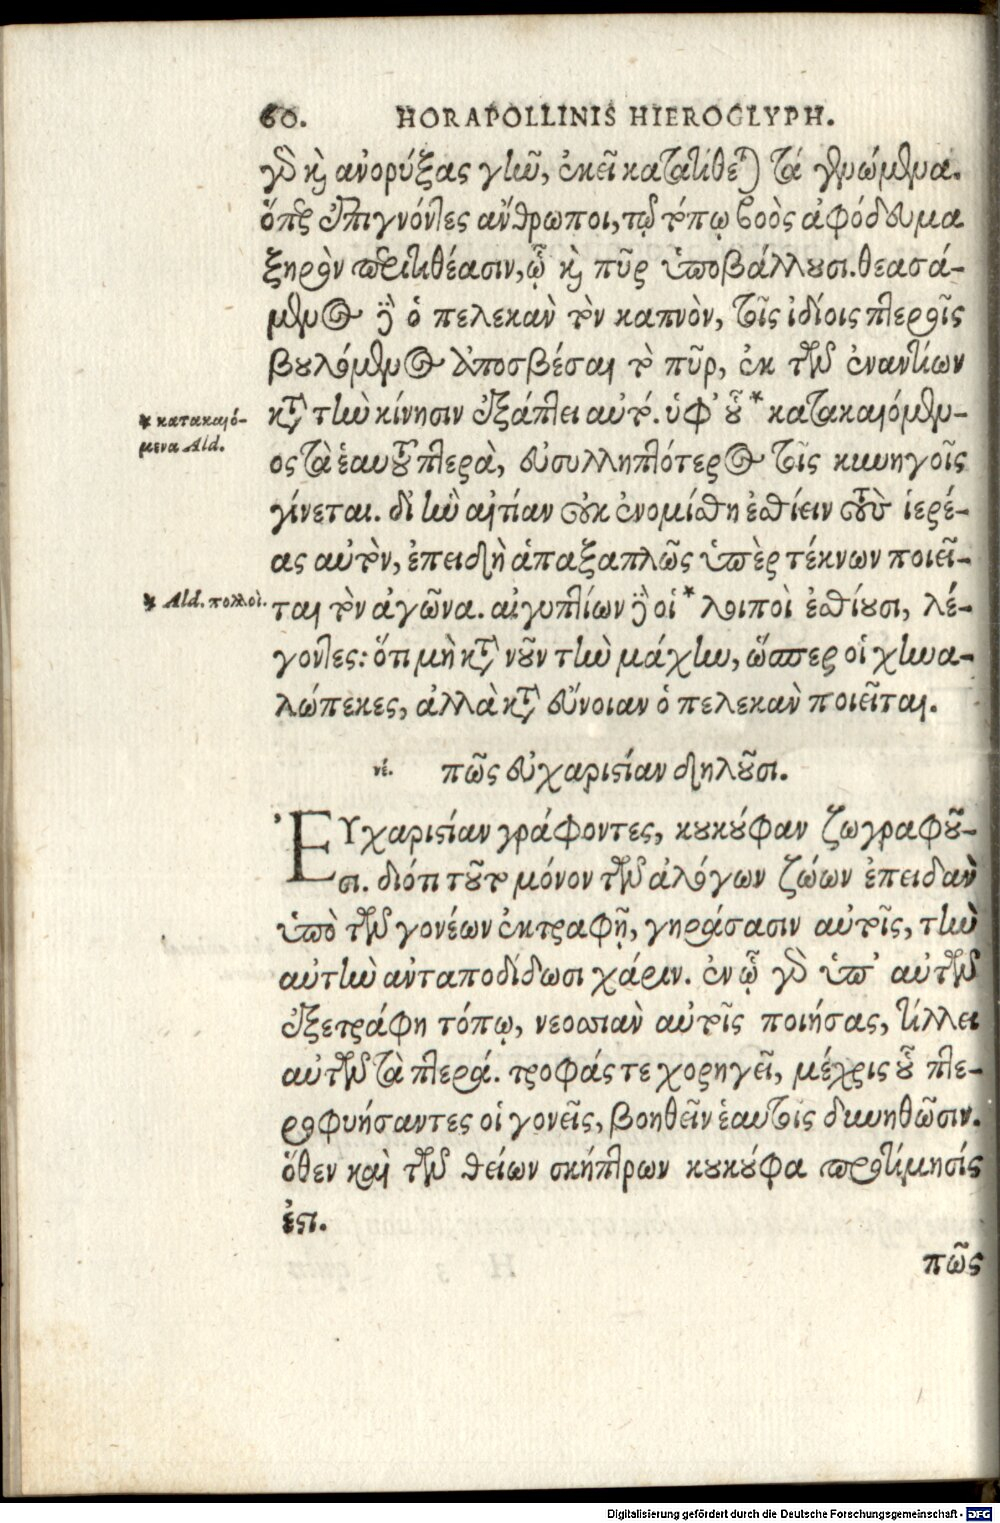 60. HORAPOLLINIS HIEROGLYPH.
γὸ καὶ ἀνορύξας γῆν, ἐκεῖ κατατίθεται τὰ γεννώμενα.
ὅπερ ἐπιγνόντες ἄνθρωποι, τῷ τόπῳ βοὸς ἀφόδευμα
ξηρὸν περιτιθέασιν, ᾧ καὶ πῦρ ὑποβάλλουσι. θεασά-
μενος δὲ ὁ πελεκὰν τὸν καπνὸν, τοῖς ἰδίοις πτεροῖς
βουλόμενος ἀποσβέσαι τὸ πῦρ, ἐκ τῶν ἐναντίων
κατὰ τὴν κίνησιν ἐξάπτει αὐτό. ὑφ' οὗ * κατακαιόμεν-
* κατακαιό-
μενα Ald.
ος τὰ ἑαυτοῦ πτερὰ, εὐσυλληπτότερος τοῖς κυνηγοῖς
γίνεται. δι' ἣν αἰτίαν οὐκ ἐνομίσθη ἐσθίειν τοὺς ἱερέ-
ας αὐτὸν, ἐπειδὴ ἁπαξαπλῶς ὑπὲρ τέκνων ποιεῖ-
* Ald. πολλοὶ.
ται τὸν ἀγῶνα. αἰγυπτίων δὲ οἱ * λοιποὶ ἐσθίουσι, λέ-
γοντες: ὅτι μὴ κατὰ νοῦν τὴν μάχην, ὥσπερ οἱ χηνα-
λώπεκες, ἀλλὰ κατὰ εὔνοιαν ὁ πελεκὰν ποιεῖται.
νέ. πῶς εὐχαριστίαν δηλοῦσι.
ἘΥχαριστίαν γράφοντες, κουκούφαν ζωγραφοῦ-
σι. διότι τοῦτο μόνον τῶν ἀλόγων ζώων ἐπειδὰν
ὑπὸ τῶν γονέων ἐκτραφῇ, γηράσασιν αὐτοῖς, τὴν
αὐτὴν ἀνταποδίδωσι χάριν. ἐν ᾧ γὸ ὑπ' αὐτῶν
ἐξετράφη τόπῳ, νεοσσιὰν αὐτοῖς ποιήσας, τίλλει
αὐτῶν τὰ πτερά. τροφάς τε χορηγεῖ, μέχρις οὗ πτε-
ροφυήσαντες οἱ γονεῖς, βοηθεῖν ἑαυτοῖς δυνηθῶσιν.
ὅθεν καὶ τῶν θείων σκήπτρων κουκούφα προτίμησίς
ἐστι.
πῶς
Digitalisierung gefördert durch die Deutsche Forschungsgemeinschaft - DFG